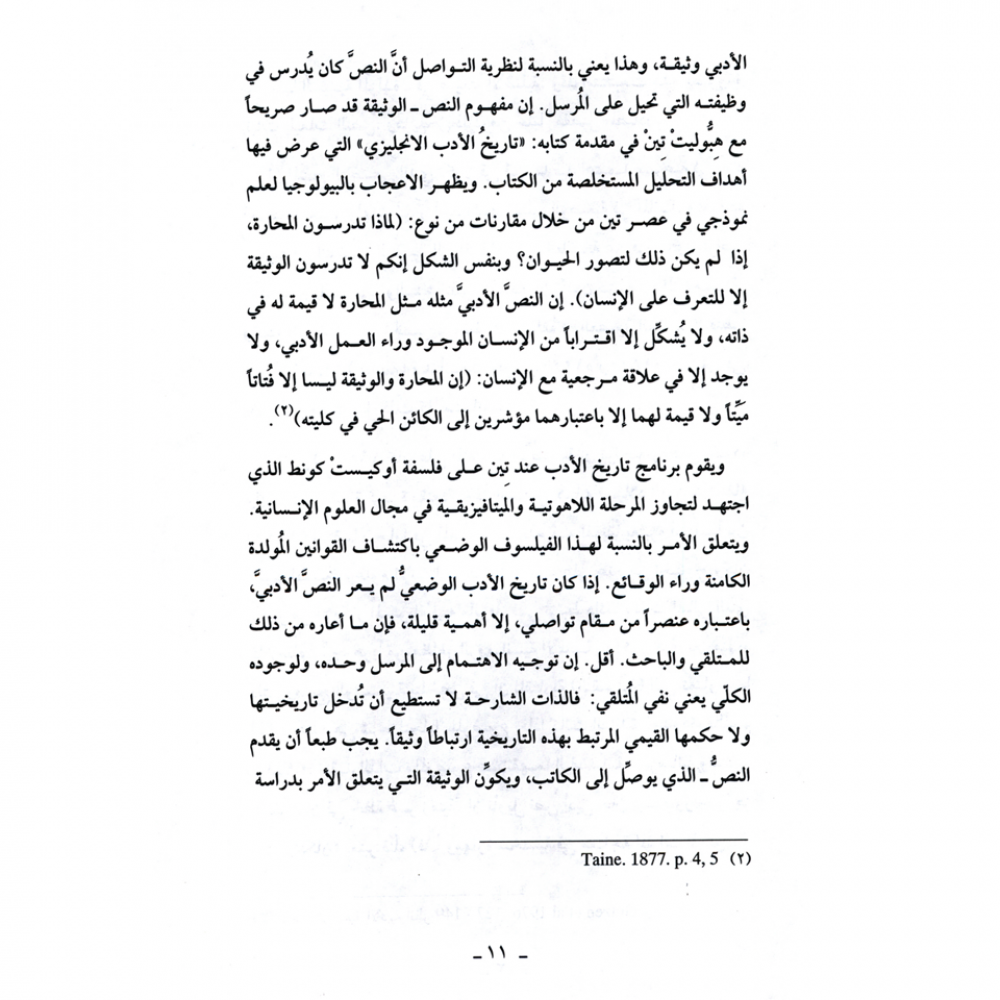 الأدبي وثيقـة، وهذا يعني بالنسبة لنظرية التـواصل أنَّ النصَّ كان يُدرس في
وظيفتـه التي تحيل عـلى المُرسل. إن مفهوم النص ـ الوثيقة قد صـار صريحاً
مع هِبُّوليتْ تِينْ في مقدمة كتابه: «تاريخُ الأدب الانجليزي» التي عرض فيها
أهداف التحليل المستخلصة من الكتاب. ويظهـر الاعجاب بالبيولوجيا لعلم
نموذجي في عصـر تين من خـلال مقارنات من نوع: (لماذا تدرسـون المحارة،
إذا لم يكن ذلك لتصور الحيـوان؟ وبنفس الشكل إنكم لا تدرسون الوثيقة
إلا للتعرف على الإنسان). إن النصَّ الأدبيَّ مثله مـثل المحارة لا قيمة له في
ذاته، ولا يُشكِّل إلا اقـتراباً من الإنسـان الموجـود وراء العمل الأدبي، ولا
يوجد إلا في علاقة مـرجعية مع الإنسان: (إن المحارة والوثيقة ليسـا إلا فُتاتاً
ميِّتاً ولا قيمة لهما إلا باعتبارهما مؤشرين إلى الكائن الحي في كليته)(٢).
ويقوم برنامج تاريخ الأدب عند تِين عـلى فلسفة أوكيسـتْ كونط الذي
اجتهـد لتجاوز المرحلة اللاهوتيـة والميتافيزيقية في مجال العلوم الإنـسانية.
ويتعلق الأمـر بالنسبة لهـذا الفيلسوف الوضـعي باكتشاف القوانين المُولدة
الكامنة وراء الوقـائع. إذا كان تاريخ الأدب الوضعيُّ لم يـعر النصَّ الأدبيَّ،
باعتـباره عنصـراً من مـقام تواصلي، إلا أهمـية قليلة، فإن مـا أعاره من ذلك
للمـتلقي والباحث. أقل. إن توجيـه الاهتـمام إلى المرسل وحـده، ولوجوده
الكلّي يعني نفي المُتلقي: فالذات الشارحـة لا تستطيع أن تُدخل تاريخيـتها
ولا حكمها القيمي المرتبط بهذه التاريخية ارتباطاً وثيقاً. يجب طبعاً أن يقدم
النصُّ ـ الذي يوصِّل إلى الكاتب، ويكوِّن الوثيقة التـي يتعلق الأمـر بدراسة
(٢) Taine. 1877. p. 4, 5
ـ ١١ ـ